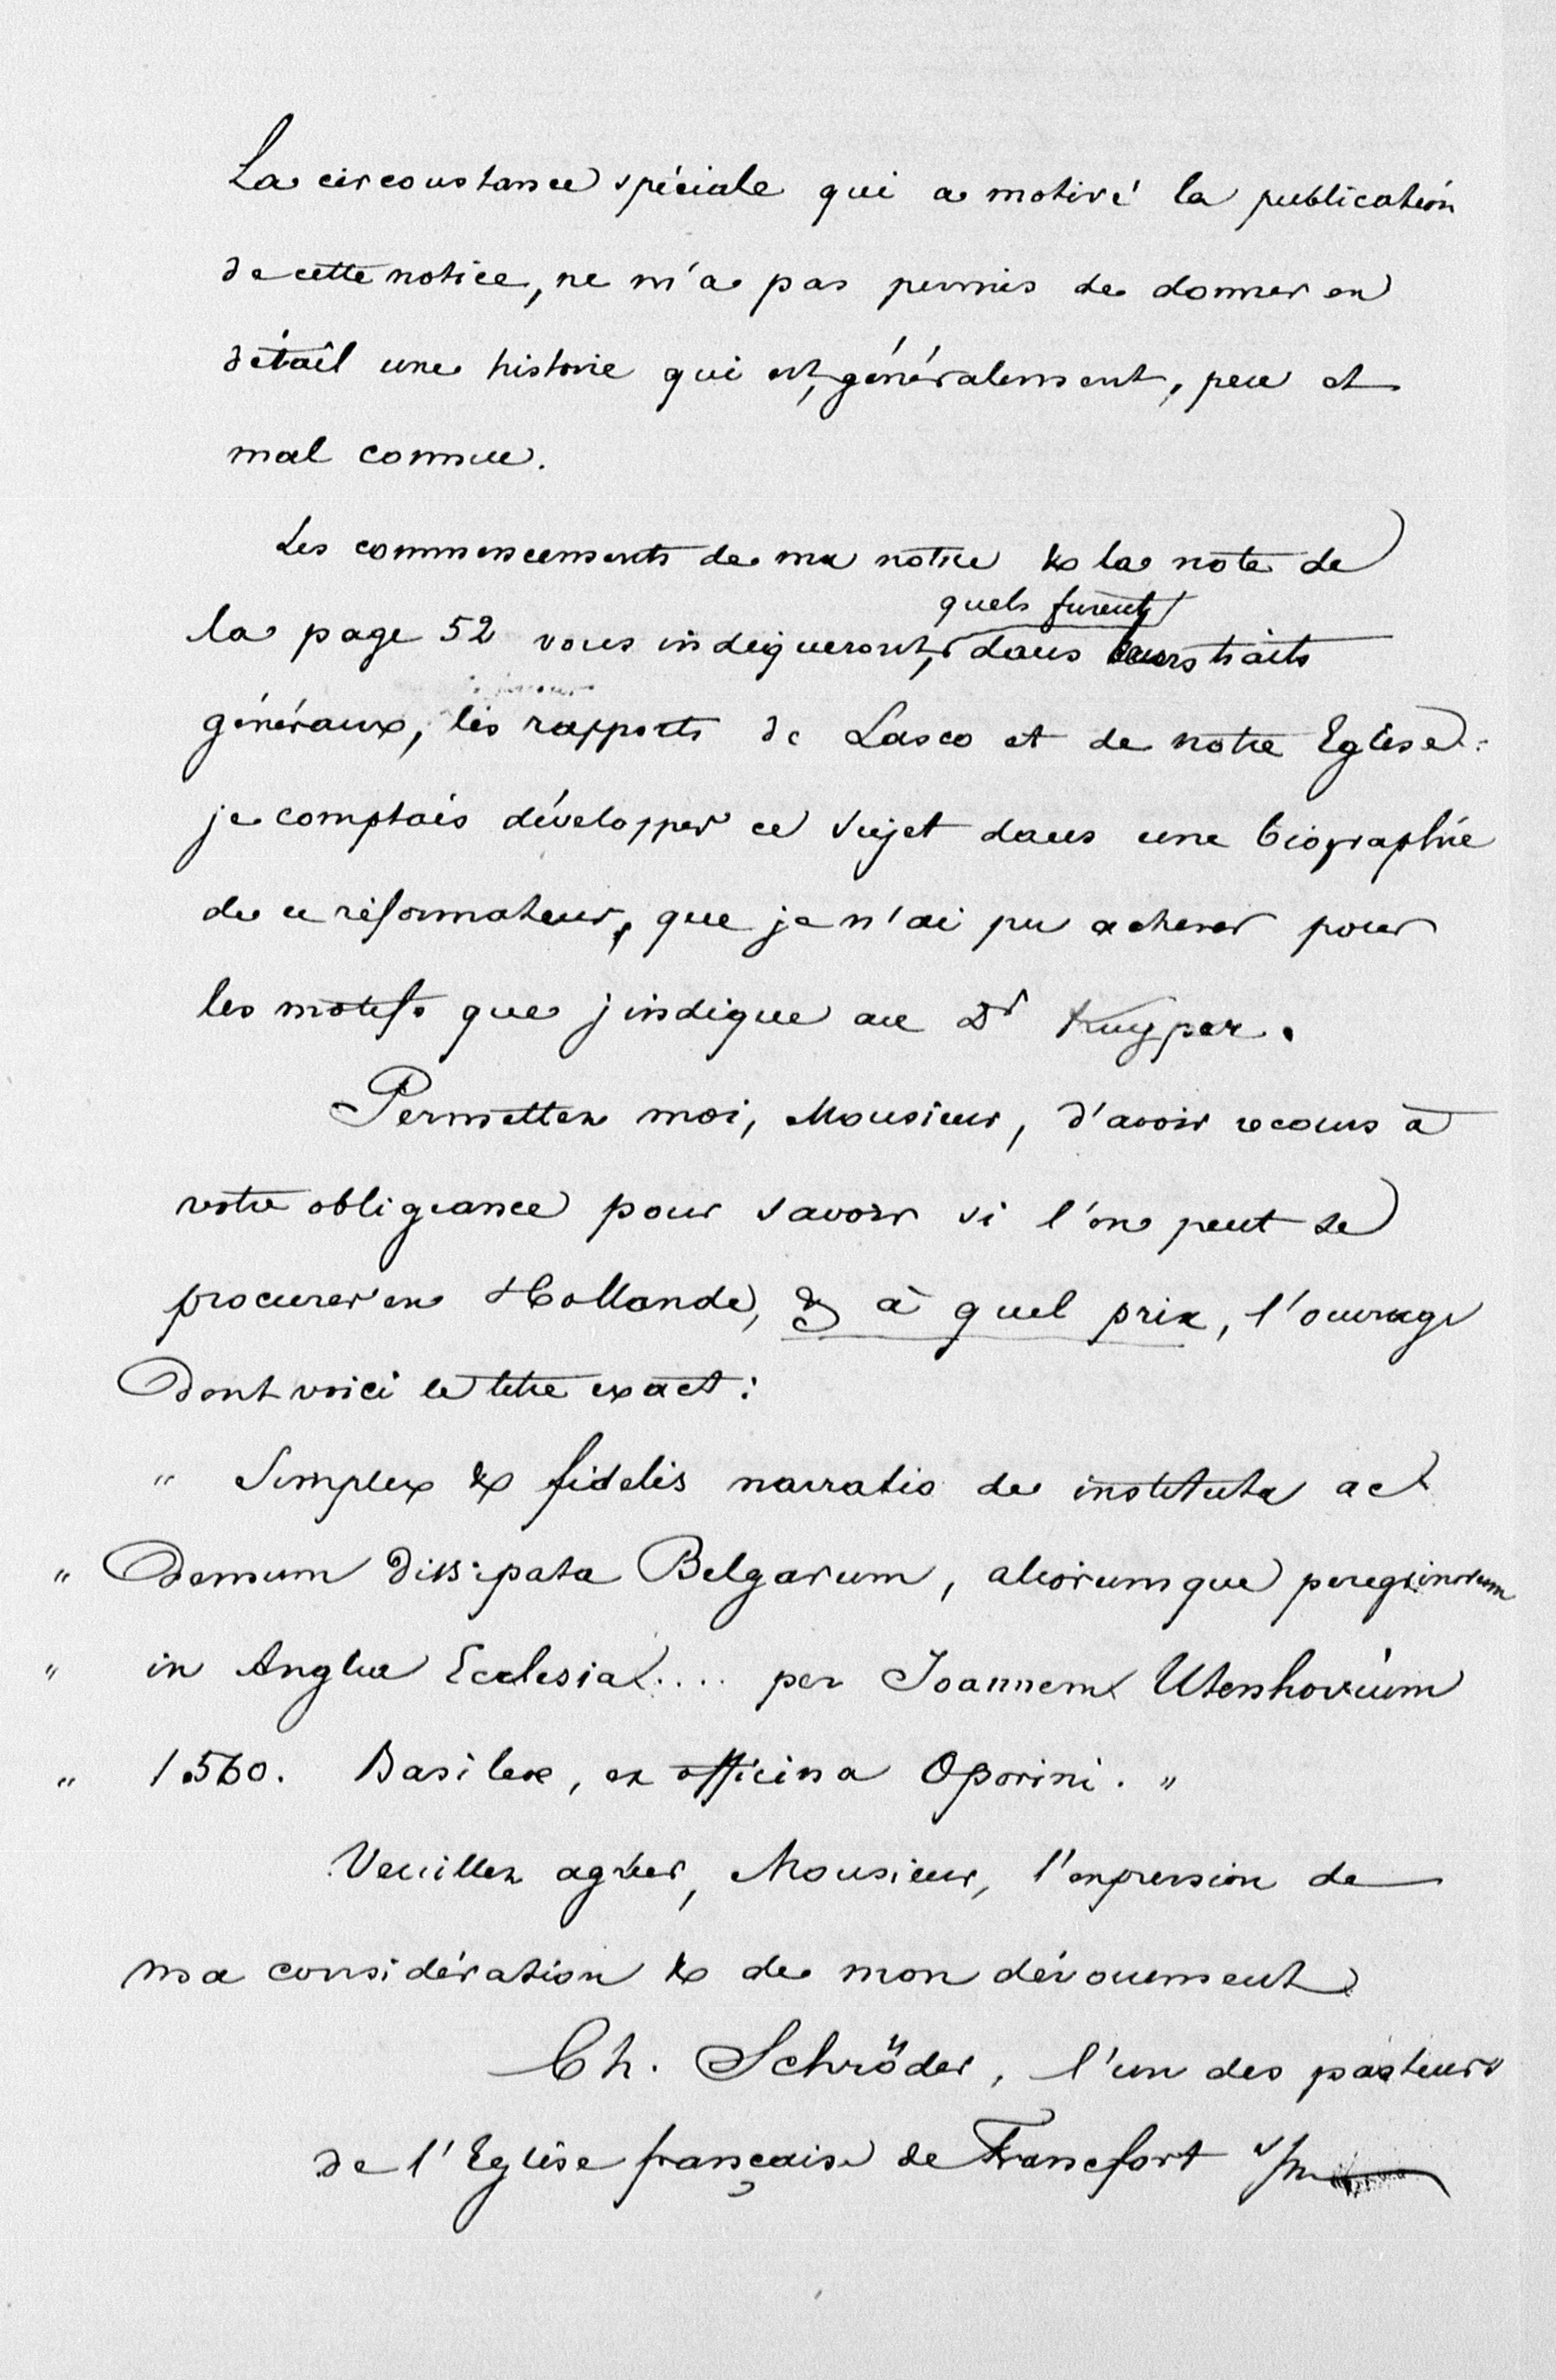 La circonstance spéciale qui a motivé la publication
de cette notice, ne m'a pas permis de donner en
détail une histoire qui est, généralement, peu et
mal connue.
Les commencements de ma notice & la note de
la page 52 vous indiqueront, quels furent dans leurs traits
généraux, les rapports de Lasco et de notre Eglise:
je comptais développer ce sujet dans une biographie
de ce réformateur, que je n'ai pu achever pour
les motifs que j'indique au Dr Kuyper.
Permettez moi, Monsieur, d'avoir recours à
votre obligeance pour savoir si l'on peut se
procurer en Hollande, & à quel prix, l'ouvrage
dont voici le titre exact:
" Simplex & fidelis narratio de instituta ac
" demum dissipata Belgarum, aliorumque peregrinorum
" in Anglia Ecclesia.... per Joannem Utenhovium
" 1560. Basileæ, ex officina Oporini. "
Veuillez agréer, Monsieur, l'expression de
ma considération & de mon dévouement
Ch. Schröder, l'un des pasteurs
de l'Eglise française de Francfort s/m